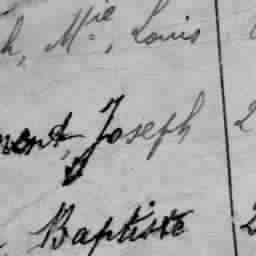 h, Mie, Louis
ment, Joseph 2
Baptiste 2